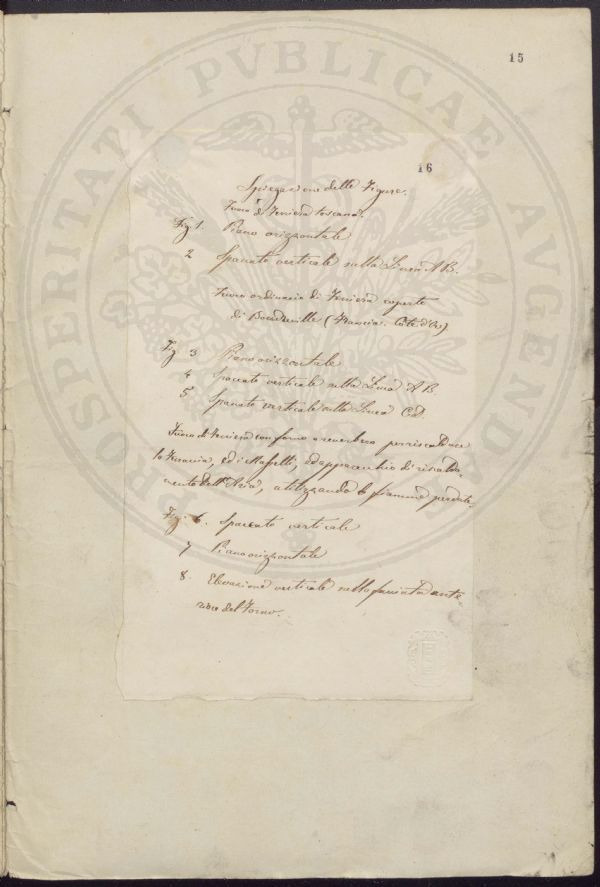 15
PROSPERITATI PVBLICAE AVGENDAE
16
Spiegazione delle Figure.
Fuoco di Ferriera toscana.
Fig. 1. Piano orizzontale
2 Spaccato verticale sulla Linea A B.
Fuoco ordinario di Ferriera coperto
di (Francia. Côte d'Or)
Fig 3 Piano orizzontale
4 Spaccato verticale sulla Linea A B.
5 Spaccato verticale sulla Linea C D.
Fuoco di Ferriera con forno a per riscaldare
la, ed i Masselli, ed apparecchio di riscalda-
mento dell'Aria, utilizzando le fiamme perdute.
Fig. 6. Spaccato verticale
7 Piano orizzontale
8. Elevazione verticale nella facciata ante-
riore del Forno.